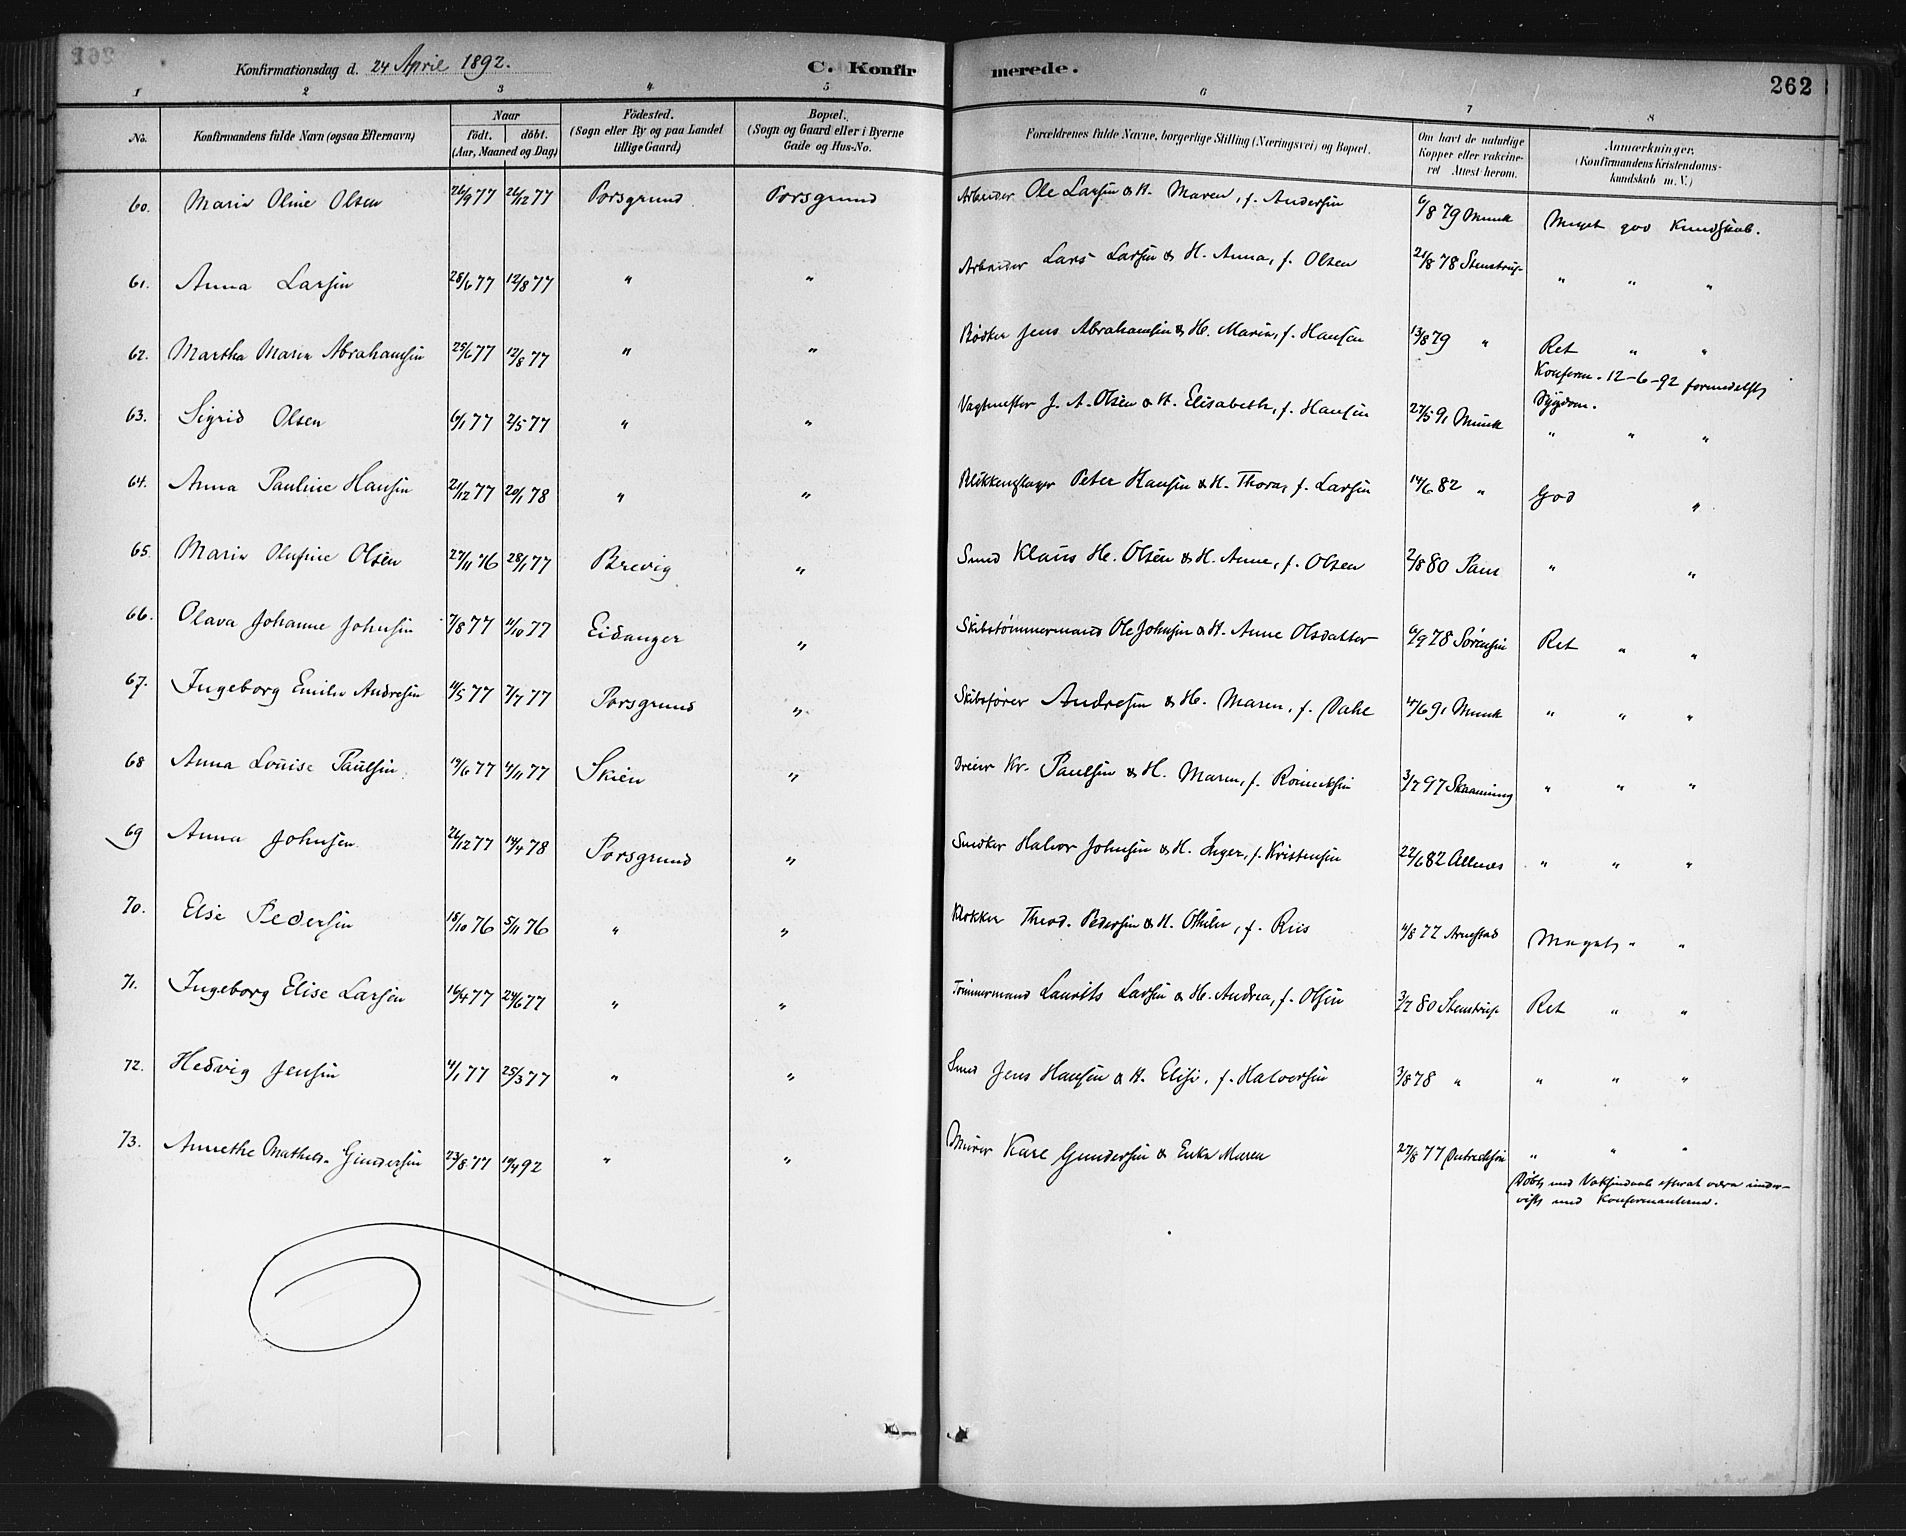 Konfirmationsdag d. 24 April 1892.
C. Konfir merede.
262
1 2 3 4 5 6 7 8
No.
Konfirmandens fulde Navn (ogsaa Efternavn)
Naar
födt. döbt.
(Aar, Maaned og Dag)
Födested.
(Sogn eller By og paa Landet
tillige Gaard)
Bopæl.
(Sogn og Gaard eller i Byerne
Gade og Hus-No.
Forældrenes fulde Navne, borgerlige Stilling (Næringsvei) og Bopæl.
Om havt de naturlige
Kopper eller vakcine-
ret Attest herom.
Anmærkninger.
(Konfirmandens Kristendoms-
kundskab m. V.)
60. Marie Oline Olsen 26/9 77 26/12 77 Porsgrund Porsgrund Arbeider Ole Larsen & H. Maren, f. Andersen 6/8 79 Munk Meget god Kundskab.
61. Anna Larsen 28/6 77 12/8 77 " " Arbeider Lars Larsen & H. Anna, f. Olsen 21/8 78 Stenstrup " " "
62. Martha Marie Abrahamsen 25/6 77 12/8 77 " " Bødker Jens Abrahamsen & H. Maria, f. Hansen 13/8 79 " Ret " "
Konferm. 12-6-92 formedelst
Sygdom.
63. Sigrid Olsen 6/1 77 2/5 77 " " Vagtmester J. A. Olsen & H. Elisabeth, f. Hansen 27/5 91 Munk " " "
64. Anna Pauline Hansen 21/12 77 20/1 78 " " Blikkenslager Peter Hansen & H. Thora, f. Larsen 14/6 82 " God "
65. Marie Olufine Olsen 27/11 76 28/1 77 Brevig " Smed Klaus H. Olsen & H. Anne, f. Olsen 2/8 80 Paus " "
66. Olava Johanne Johnsen 7/8 77 4/10 77 Eidanger " Skibstömmermand Ole Johnsen & H. Anne Olsdatter 6/9 78 Sörensen Ret " "
67. Ingeborg Emilie Andresen 11/5 77 7/7 77 Porsgrund " Skibsförer Andresen & H. Maren, f. Dahl 4/6 91 Munk " " "
68 Anna Louise Paulsen 19/6 77 4/11 77 Skien " Dreier Kr. Paulsen & H. Maren, f. 3/7 97 Skaanning " " "
69 Anna Johnsen 26/12 77 14/4 78 Porsgrund " Snedker Halvor Johnsen & H. Inger, f. Kristensen 22/6 82 " " "
70. Else Pedersen 18/10 76 5/11 76 " " Klokker Theod. Pedersen & H. Othilie, f. Riis 4/8 77 Arnestad Meget " "
71. Ingeborg Elise Larsen 16/4 77 24/6 77 " " Tömmermand Laurits Larsen & H. Andrea, f. Olsen 3/7 80 Stenstrup Ret " "
72. Hedvig Jensen 4/1 77 25/3 77 " " Smed Jens Hansen & H. Elise, f. Halvorsen 3/8 78 " " " "
73. Annethe Mathild. Gundersen 23/8 77 19/4 92 " " Murer Karl Gundersen & Enke Maren 27/8 77 " " "
Döbt med
med Konfermanterne.